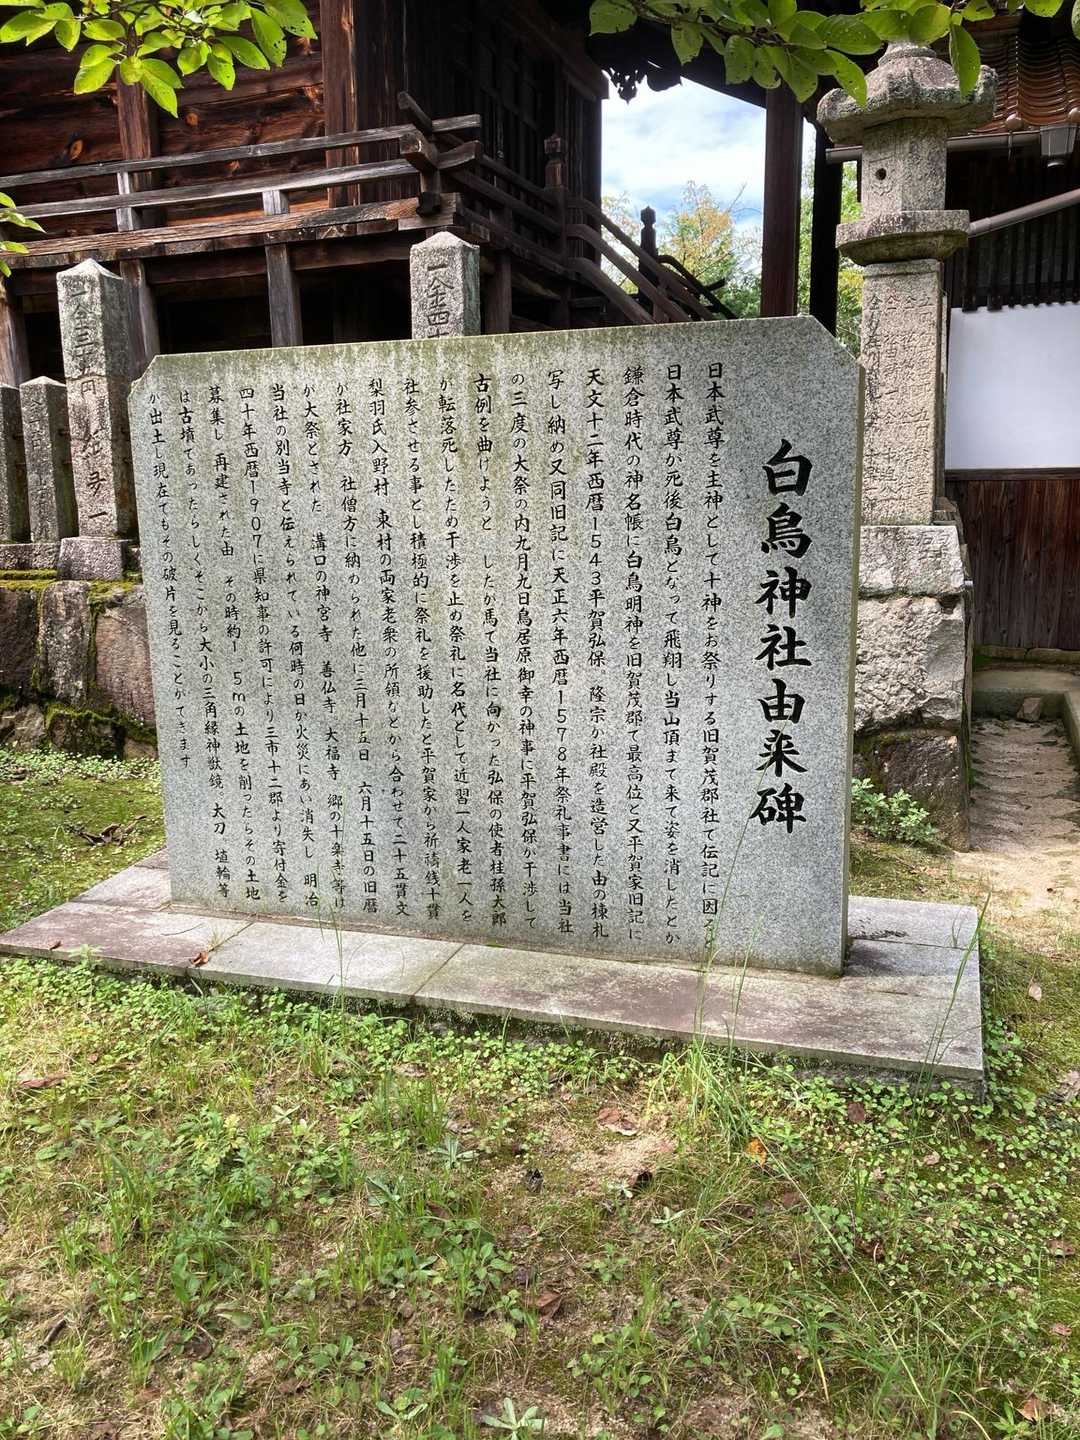 白鳥神社由来碑
日本武尊を主神として十神をお祭りする旧賀茂郡社で伝記に因ると
日本武尊が死後白鳥となって飛翔し当山頂まで来て姿を消したとか
鎌倉時代の神名帳に白鳥明神を旧賀茂郡で最高位と又平賀家旧記に
天文十二年西暦1543平賀弘保。隆宗が社殿を造営した由の棟札
写し納め又同旧記に天正六年西暦1578年祭礼事書には当社
の三度の大祭の内九月九日鳥居原御幸の神事に平賀弘保が干渉して
古例を曲げようと したが馬で当社に向かった弘保の使者桂孫太郎
が転落死したため干渉を止め祭礼に名代として近習一人家老一人を
社参させる事とし積極的に祭礼を援助したと平賀家から祈祷銭十貫
梨羽氏入野村 東村の両家老衆の所領などから合わせて二十五貫文
が社家方。社僧方に納められた他に三月十五日 六月十五日の旧暦
が大祭とされた 溝口の神宮寺 善仏寺 大福寺 郷の十楽寺等は
当社の別当寺と伝えられている何時の日か火災にあい消失し 明治
四十年西暦1907に県知事の許可により三市十二郡より寄付金を
募集し 再建された由 その時約1.5mの土地を削ったらその土地
は古墳であったらしくそこから大小の三角縁神獣鏡 太刀 埴輪等
が出土し現在でもその破片を見ることができます
一金三十円
一金四十